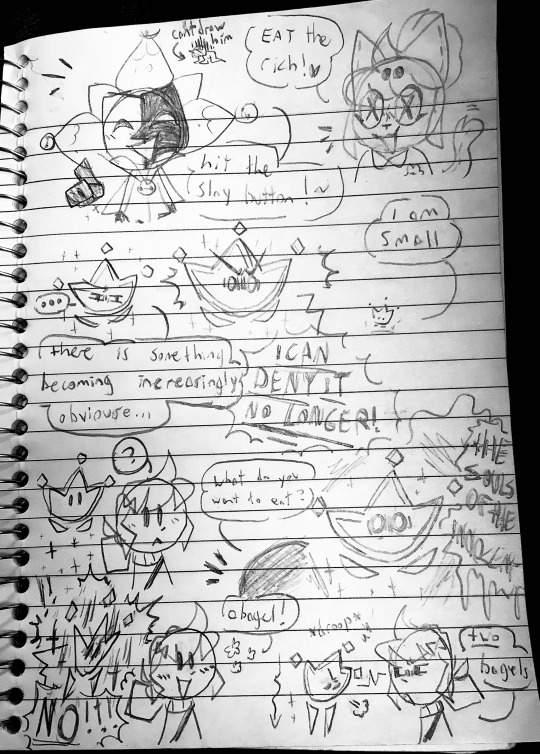 cant draw
him
EAT the
rich!
hit the
slay button!~
i am
small
...
there is something
becoming increasingly
obviouse...
I CAN
DENY IT
NO LONGER!
?
what do you
want to eat?
THE
SOULS
OF THE
INNOCENT
NO!!!
a bagel!
*droop*
two
bagels